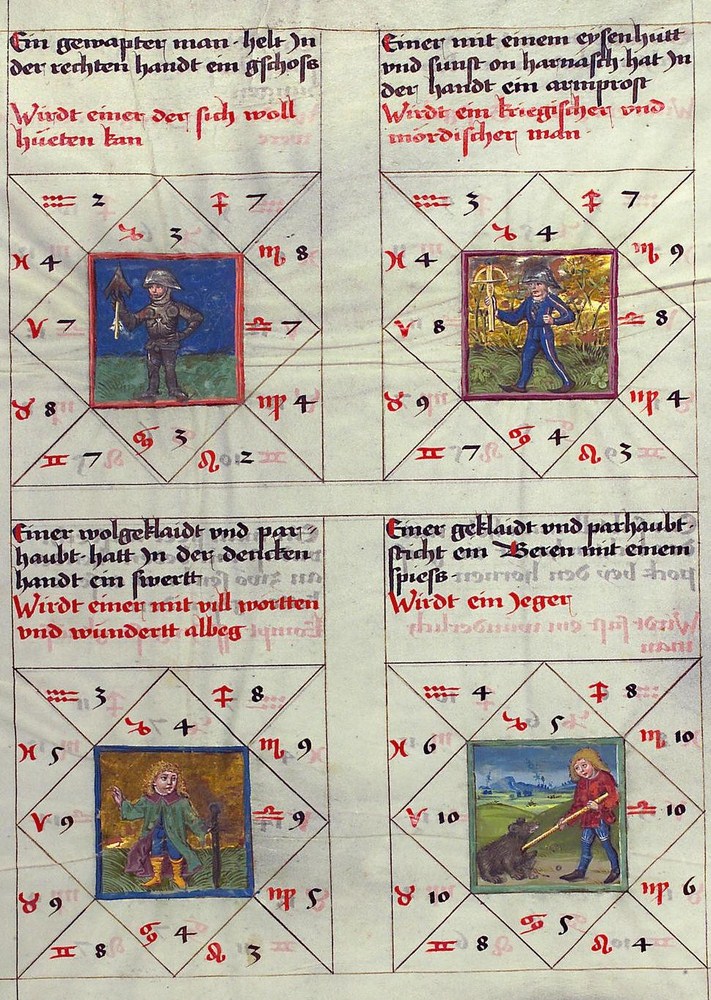 Ein gewapter man · helt Jn
der rechten handt ein gschoss
Wirdt einer der sich woll
hüeten kan
♒ 2 ♐ 7
♑ 3
♓ 4 ♏ 8
♈ 7 ♎ 7
♉ 8 ♍ 4
♋ 3
♊ 7 ♌ 2
Einer mit einem eysenhutt
vnd sunst on harnasch · hat Jn
der handt ein armprost
Wirdt ein kriegischer vnd
mördischer man ·
♒ 3 ♐ 7
♑ 4
♓ 4 ♏ 9
♈ 8 ♎ 8
♉ 9 ♍ 4
♋ 4
♊ 7 ♌ 3
Einer wolgeklaidt vnd par-
haubt · hatt Jn der dencken
handt ein swertt
Wirdt einer mit vill wortten
vnd wundertt albeg
♒ 3 ♐ 8
♑ 4
♓ 5 ♏ 9
♈ 9 ♎ 9
♉ 9 ♍ 5
♋ 4
♊ 8 ♌ 3
Einer geklaidt vnd parhaubt ·
sticht ein Beren mit einem
spiess
Wirdt ein Jeger
♒ 4 ♐ 8
♑ 5
♓ 6 ♏ 10
♈ 10 ♎ 10
♉ 10 ♍ 6
♋ 5
♊ 8 ♌ 4